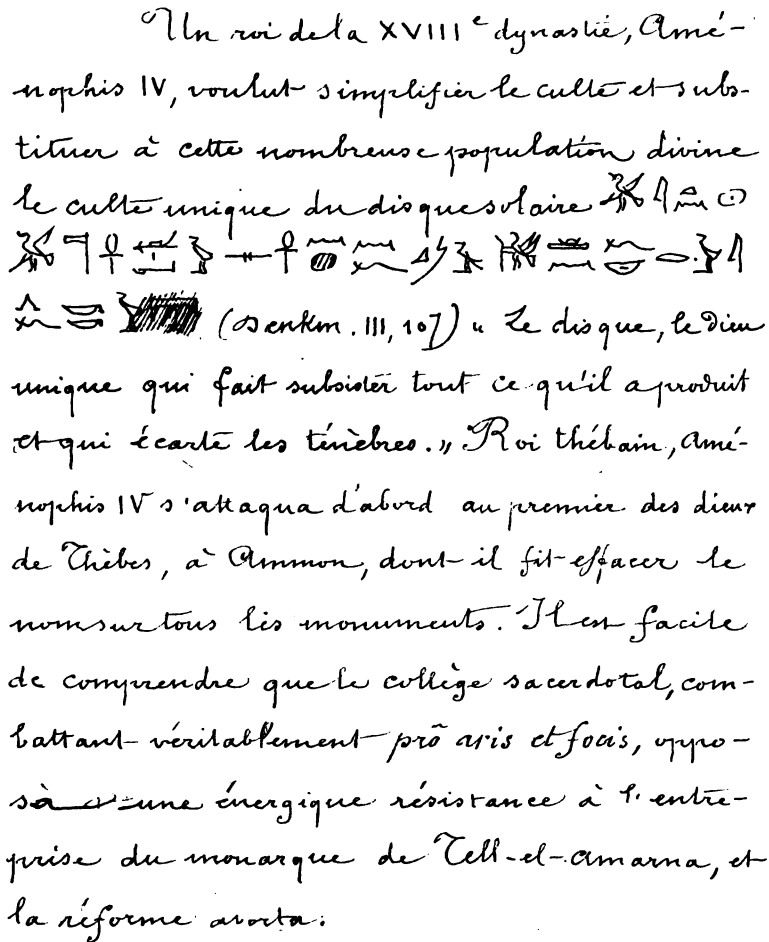 Un roi de la XVIIIe dynastie, Amé-
nophis IV, voulut simplifier le culte et subs-
tituer à cette nombreuse population divine
le culte unique du disque solaire
(Denkm. III, 107) « Le disque, le Dieu
unique qui fait subsister tout ce qu'il a produit
et qui écarte les ténèbres. » Roi thébain, Amé-
nophis IV s'attaqua d'abord au premier des dieux
de Thèbes, à Ammon, dont il fit effacer le
nom sur tous les monuments. Il est facile
de comprendre que le collège sacerdotal, com-
battant véritablement prō aris et focis, oppo-
sa une énergique résistance à l'entre-
prise du monarque de Tell-el-Amarna, et
la réforme avorta.